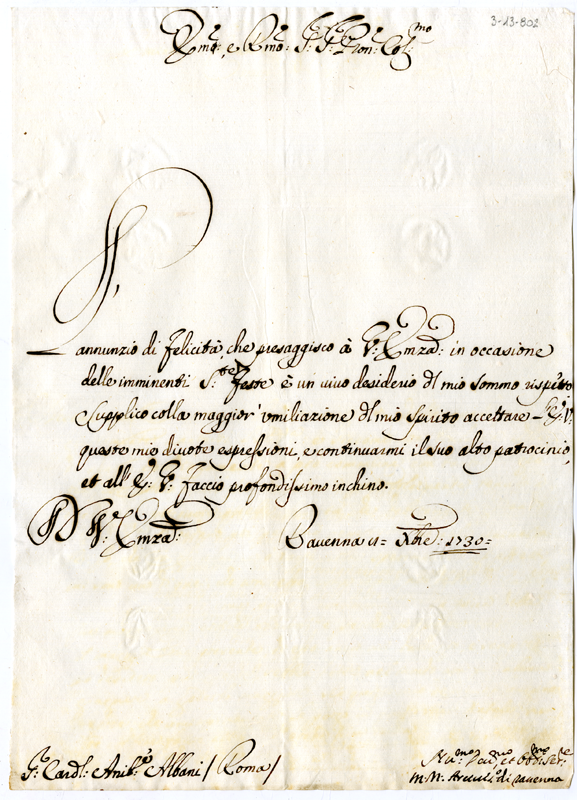 3-13-802
Em̃o: e Rm̃o: S: S: P̃ron: Col:mo
L'annunzio di felicità, che presaggisco à V: Emza: in occasione
delle imminenti S:te Feste è un vivo desiderio dl mio sommo rispetto
Supplico colla maggior' umiliazione dl mio Spirito accettare V:
queste mie divote espressioni, e continuarmi il suo alto patrocinio,
et all' V: faccio profondissimo inchino.
D V: Emza:
Ravenna Xbre: 1730=
S: Cardl: Anib: Albani / Roma /
et
M. N: Arcives:o di Ravenna